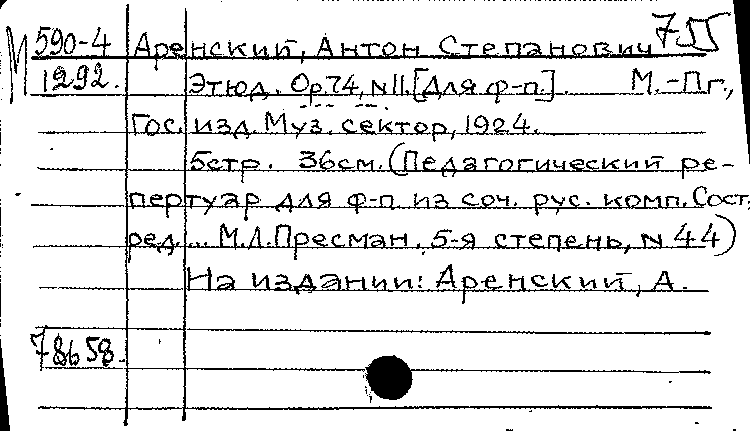 М 590-4 Аренский, Антон Степанович
1292. Этюд. Op.74, N11. [Для ф-п.]. М.-Пг.,
Гос. изд. Муз. сектор, 1924.
5стр. 36см. (Педагогический ре-
пертуар для ф-п. из соч. рус. комп. Сост.
ред. ... М.Л.Пресман. 5-я степень, N 44)
На издании: Аренский, А.
78658.